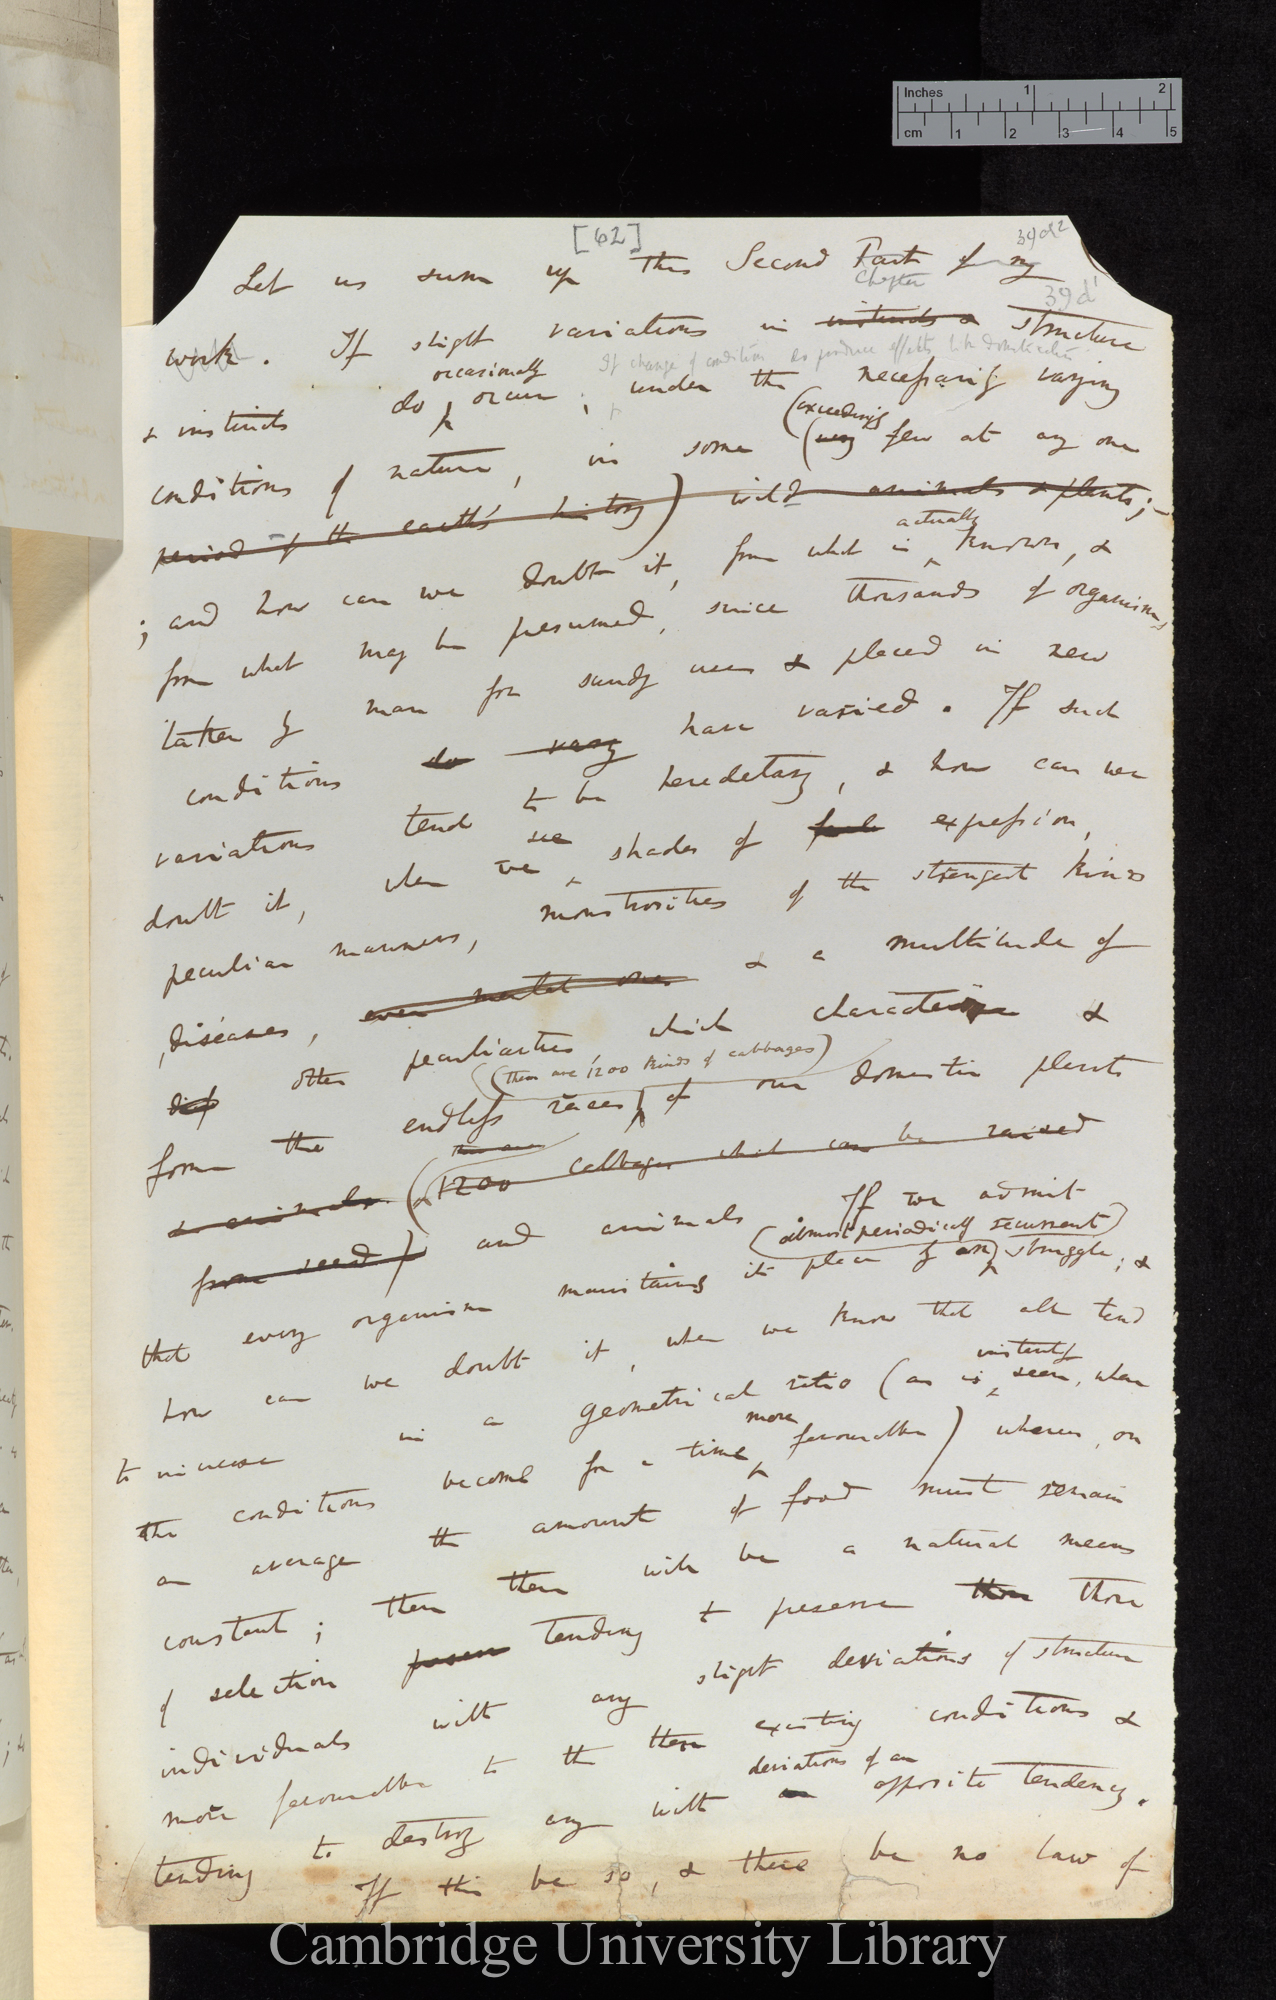 Inches 1 2
cm 1 2 3 4 5
[62]
39d2
Let us sum up this Second Part of my
Chapter
39d1
work. If slight variations in instincts & structure
If change of condition do produce effects like domestication
occasionally
& instincts do occur, under the necessarily varying
exceedingly
conditions of nature, in some (very few at any one
period of the earth's history) wild animals & plants;—
actually
; and how can we doubt it, from what is known, &
from what may be presumed, since thousands of organisms
taken by man for sundry uses & placed in new
conditions do vary have varied. If such
variations tend to be heredetary, & how can we
see
doubt it, when we shades of expression,
peculiar manners, monstrosities of the strangest kinds
diseases, even mental ones & a multitude of
other peculiarities which characterise &
(there are 1200 kinds of cabbages)
form the endless races, of our domestic plants
there are
& animals (& 1200 cabbages which can be raised
from seed) and animals. If we admit
(almost periodically recurrent)
that every organism maintains its place by an struggle; &
how can we doubt it, when we know that all tend
instantly
to increase in a geometrical ratio (as is seen, when
more
the conditions become for a time favourable) whereas, on
an average the amount of food must remain
constant; then there will be a natural means
of selection tending to preserve those those
individuals with any slight deviations of structure
more favourable to the then existing conditions &
deviations of an
tending to destroy any with an opposite tendency.
If this be so, & there be no law of
Cambridge University Library